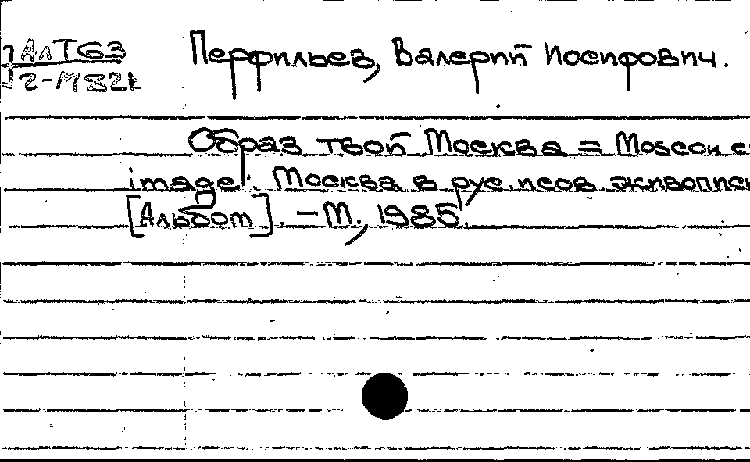 АлТ63
2-М82к
Перфильев, Валерий Иосифович.
Образ твой Москва = Moscow
image: Москва в рус. и сов. живописи
[Альбом]. – М., 1985.